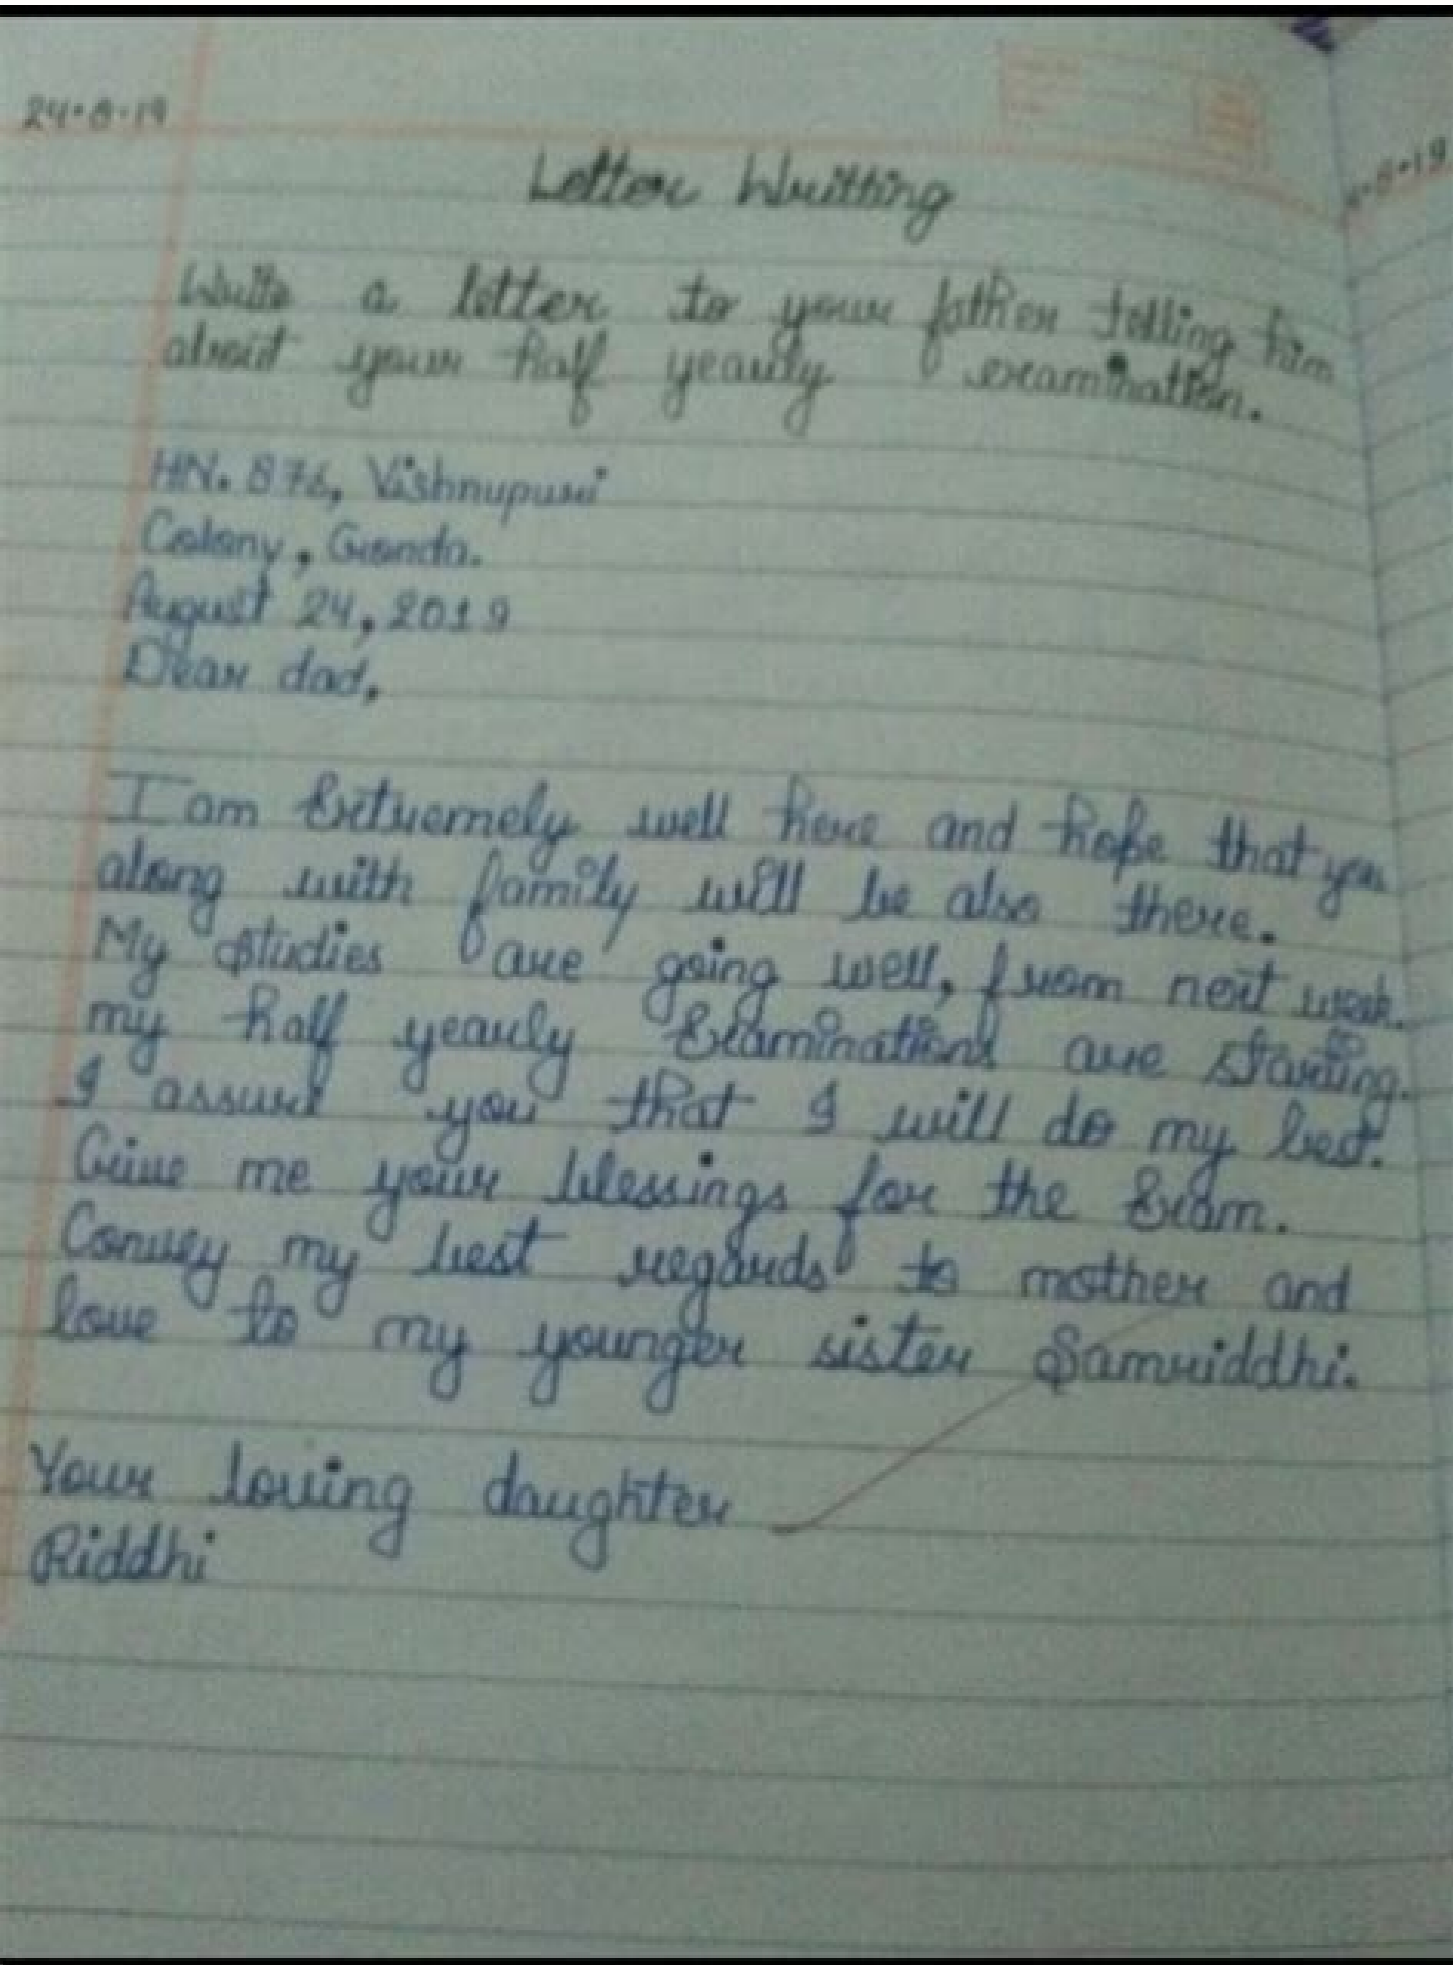 24.8.19
Letter Writting
Write a letter to your father telling him
about your half yearly examination.
HN. 876, Vishnupuri
Colony, Gonda.
August 24, 2019
Dear dad,
I am Extremely well here and hope that you
along with family will be also there.
My studies are going well, from next week
my half yearly Examinations are starting.
I assure you that I will do my best.
Give me your blessings for the Exam.
Convey my best regards to mother and
love to my younger sister Samriddhi.
Your loving daughter
Riddhi